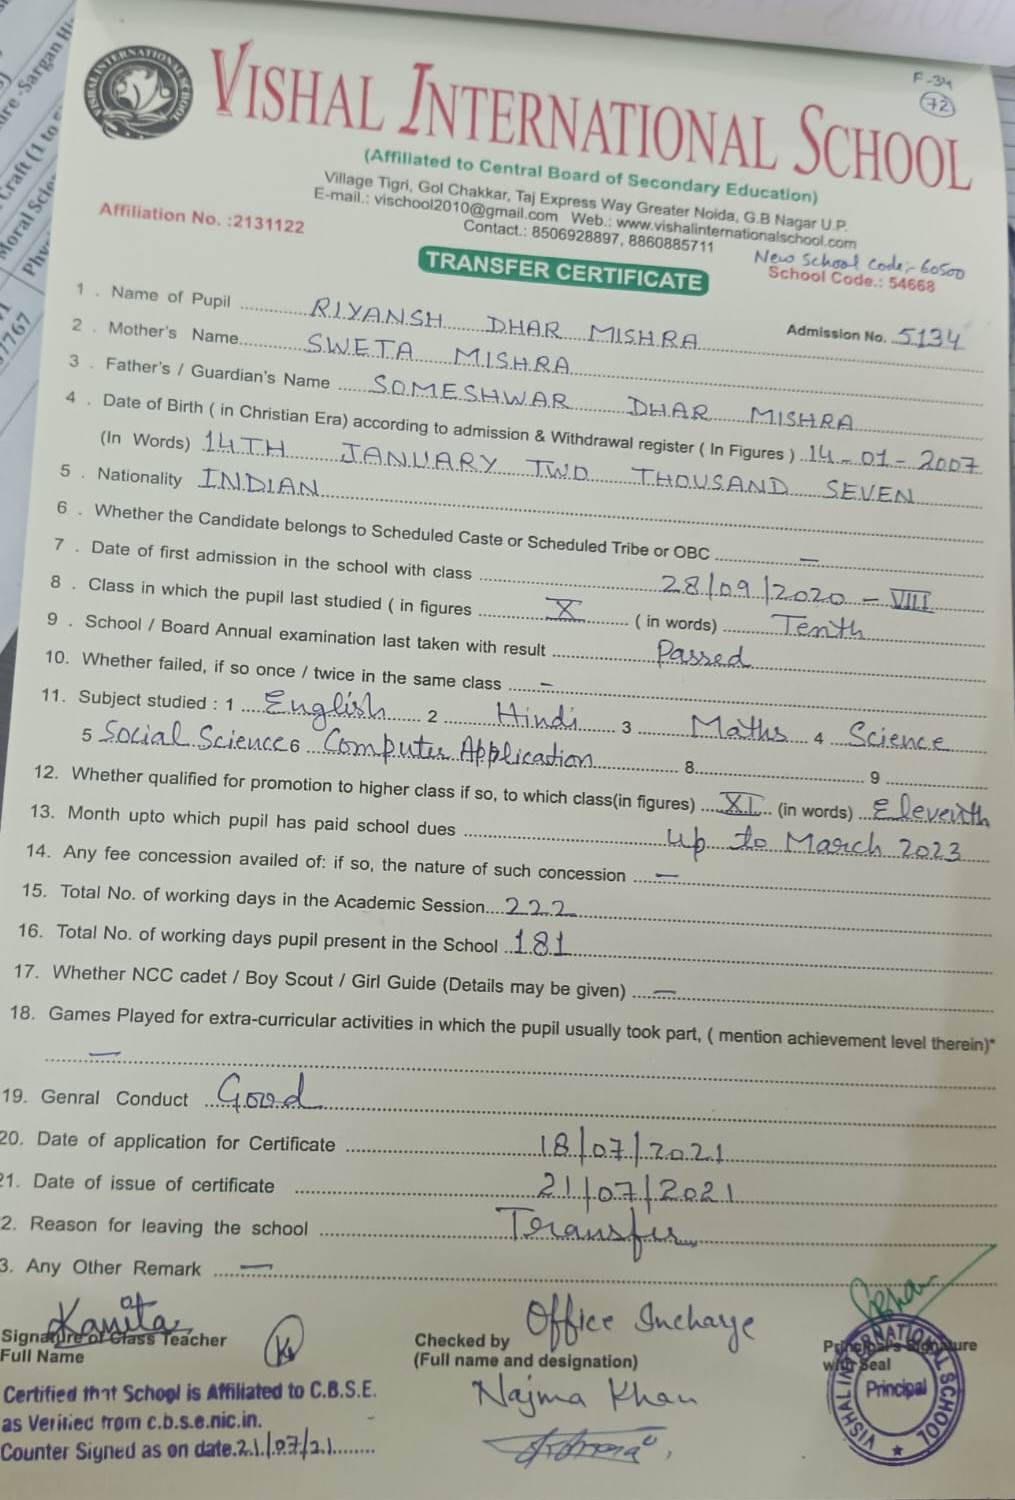 F-34
72
VISHAL INTERNATIONAL SCHOOL
(Affiliated to Central Board of Secondary Education)
Village Tigri, Gol Chakkar, Taj Express Way Greater Noida, G.B Nagar U.P.
E-mail.: vischool2010@gmail.com Web.: www.vishalinternationalschool.com
Affiliation No. :2131122
Contact.: 8506928897, 8860885711
New School Code:- 60500
TRANSFER CERTIFICATE
School Code.: 54668
1 . Name of Pupil RIYANSH DHAR MISHRA Admission No. 5134
2 . Mother's Name SWETA MISHRA
3 . Father's / Guardian's Name SOMESHWAR DHAR MISHRA
4 . Date of Birth ( in Christian Era) according to admission & Withdrawal register ( In Figures ) 14-01-2007
(In Words) 14TH JANUARY TWO THOUSAND SEVEN
5 . Nationality INDIAN
6 . Whether the Candidate belongs to Scheduled Caste or Scheduled Tribe or OBC —
7 . Date of first admission in the school with class 28/09/2020 - VIII
8 . Class in which the pupil last studied ( in figures X ( in words) Tenth
9 . School / Board Annual examination last taken with result Passed
10. Whether failed, if so once / twice in the same class —
11. Subject studied : 1 English 2 Hindi 3 Maths 4 Science
5 Social Science 6 Computer Application 8 9
12. Whether qualified for promotion to higher class if so, to which class(in figures) XI (in words) Eleventh
13. Month upto which pupil has paid school dues up to March 2023
14. Any fee concession availed of: if so, the nature of such concession —
15. Total No. of working days in the Academic Session 222
16. Total No. of working days pupil present in the School 181
17. Whether NCC cadet / Boy Scout / Girl Guide (Details may be given) —
18. Games Played for extra-curricular activities in which the pupil usually took part, ( mention achievement level therein)*
—
19. Genral Conduct Good
20. Date of application for Certificate 18/07/2021
21. Date of issue of certificate 21/07/2021
2. Reason for leaving the school Transfer
3. Any Other Remark —
Kanita
Office Incharge
Signature of Class Teacher
Full Name
Checked by
(Full name and designation)
Principal's Signature
with Seal
Najma Khan
VISHAL INTERNATIONAL SCHOOL
Principal
Certified that School is Affiliated to C.B.S.E.
as Verified from c.b.s.e.nic.in.
Counter Signed as on date.21/07/21